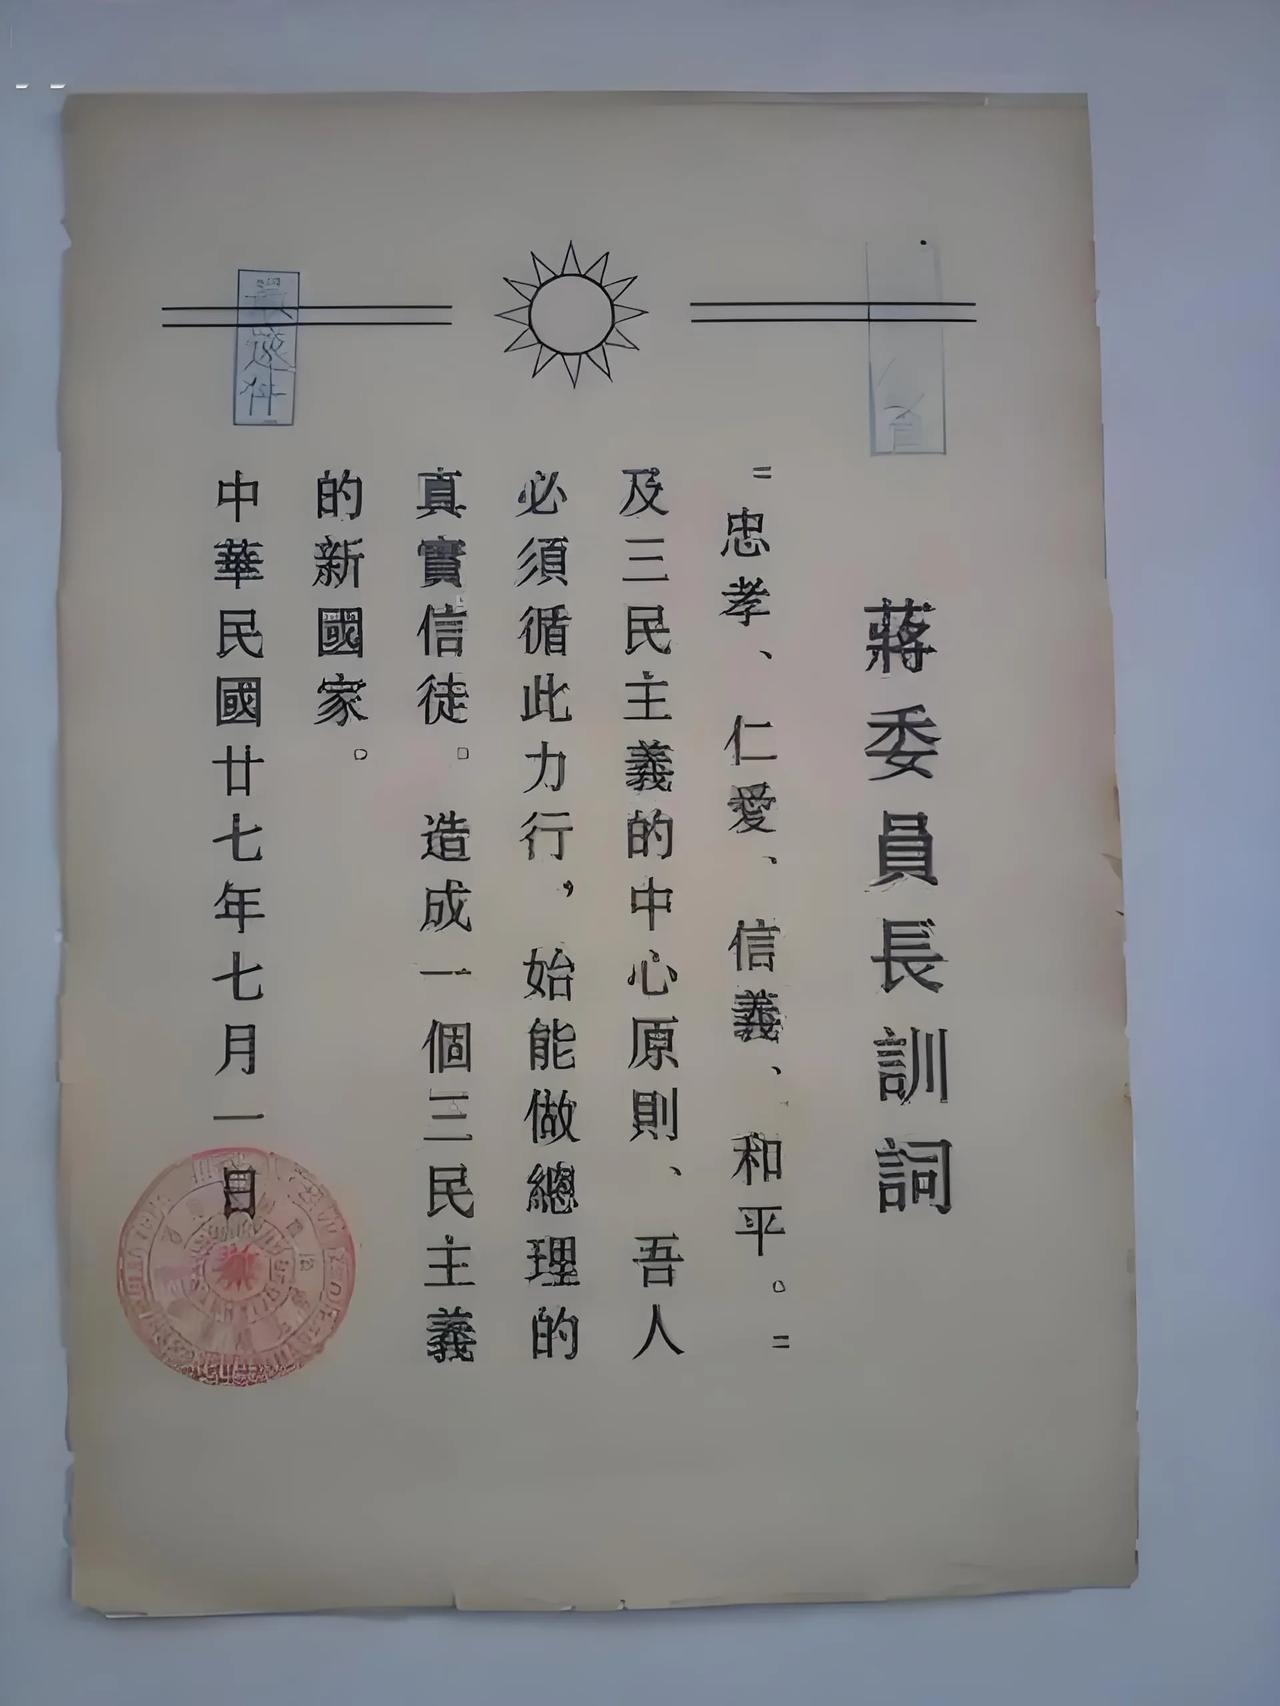 蔣委員長訓詞
"忠孝、仁愛、信義、和平。"
及三民主義的中心原則、吾人
必須循此力行，始能做總理的
真實信徒。造成一個三民主義
的新國家。
中華民國廿七年七月一日
最速件